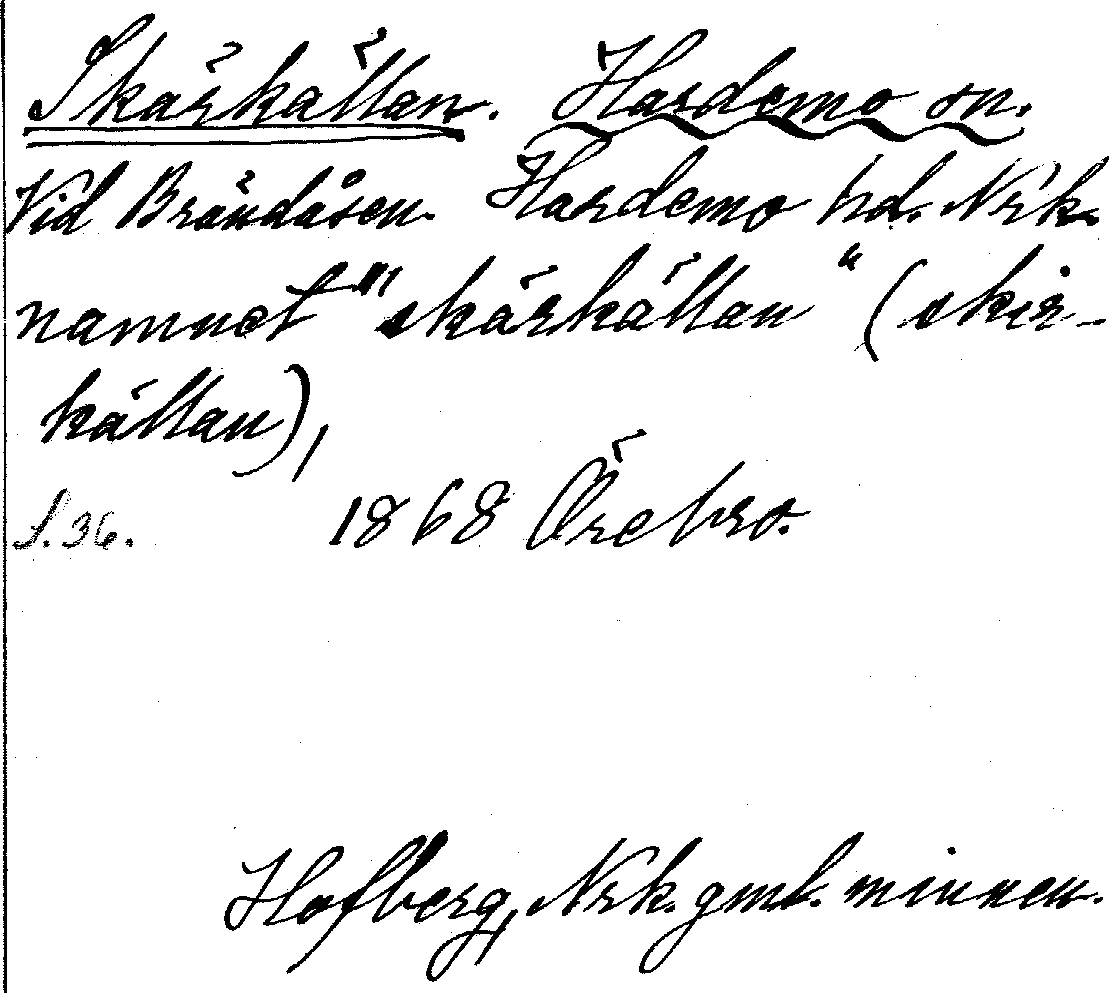 Skärkällan. Hardemo sn.
Vid Brändåsen. Hardemo hd. Nrk.
namnet "skärkällan" (skir-
källan),
S. 36. 1868 Örebro.
Hofberg, Nrk. gml. minnen.